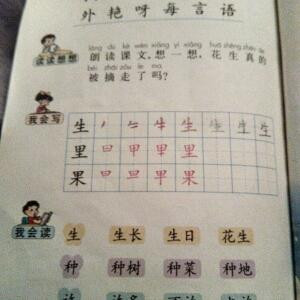 外 艳 呀 每 言 语
读读想想
lǎng dú kè wén xiǎng yì xiǎng huā shēng zhēn de
朗读课文,想一想,花生真的
bèi zhāi zǒu le ma
被摘走了吗?
我会写
生 生 生 生 生
里 里
果 果
我会读
生 生长 生日 花生
种 种树 种菜 种地